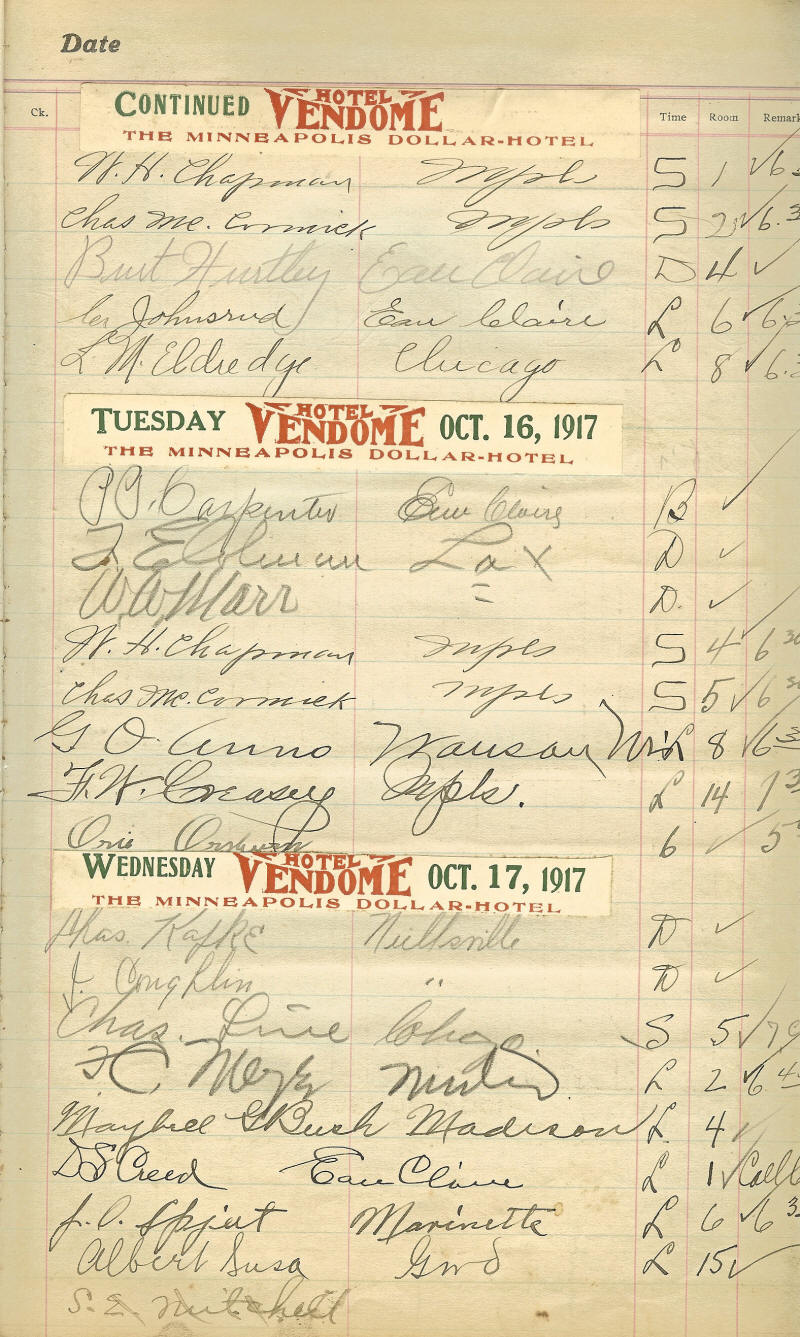 Date
Ck. Time Room Remark
CONTINUED HOTEL VENDOME
THE MINNEAPOLIS DOLLAR-HOTEL
W. H. Chapman Mpls S 1 ✓ 6
Chas Mc. Cormick Mpls S 2 ✓ 6.3
Burt Hurtley Eau Claire D 4 ✓
Johnsrud Eau Claire L 6 ✓ 6
L M. Eldredge Chicago L 8 ✓ 6.3
TUESDAY HOTEL VENDOME OCT. 16, 1917
THE MINNEAPOLIS DOLLAR-HOTEL
Carpenter Eau Claire B ✓
La X D ✓
W W Marr = D. ✓
W. H. Chapman Mpls S 4 6 30
Chas Mc. Cormick Mpls S 5 ✓ 6 30
G O Anno Wausau, Wis L 8 ✓ 6 3
F. W. Creasey Mpls. L 14 1 3
6 ✓ 5
WEDNESDAY HOTEL VENDOME OCT. 17, 1917
THE MINNEAPOLIS DOLLAR-HOTEL
Kafke Neillsville D ✓
J. Coughlin " D ✓
Chas. Line Chgo. S 5 ✓ 7
F C L 2 ✓ 6 4
Maybell G Bush Madison L 4 ✓
D S Creed Eau Claire L 1 ✓ Call 6
Marinette L 6 ✓ 6 3
Albert Susa Gwd L 15 ✓
S. E. Mitchell